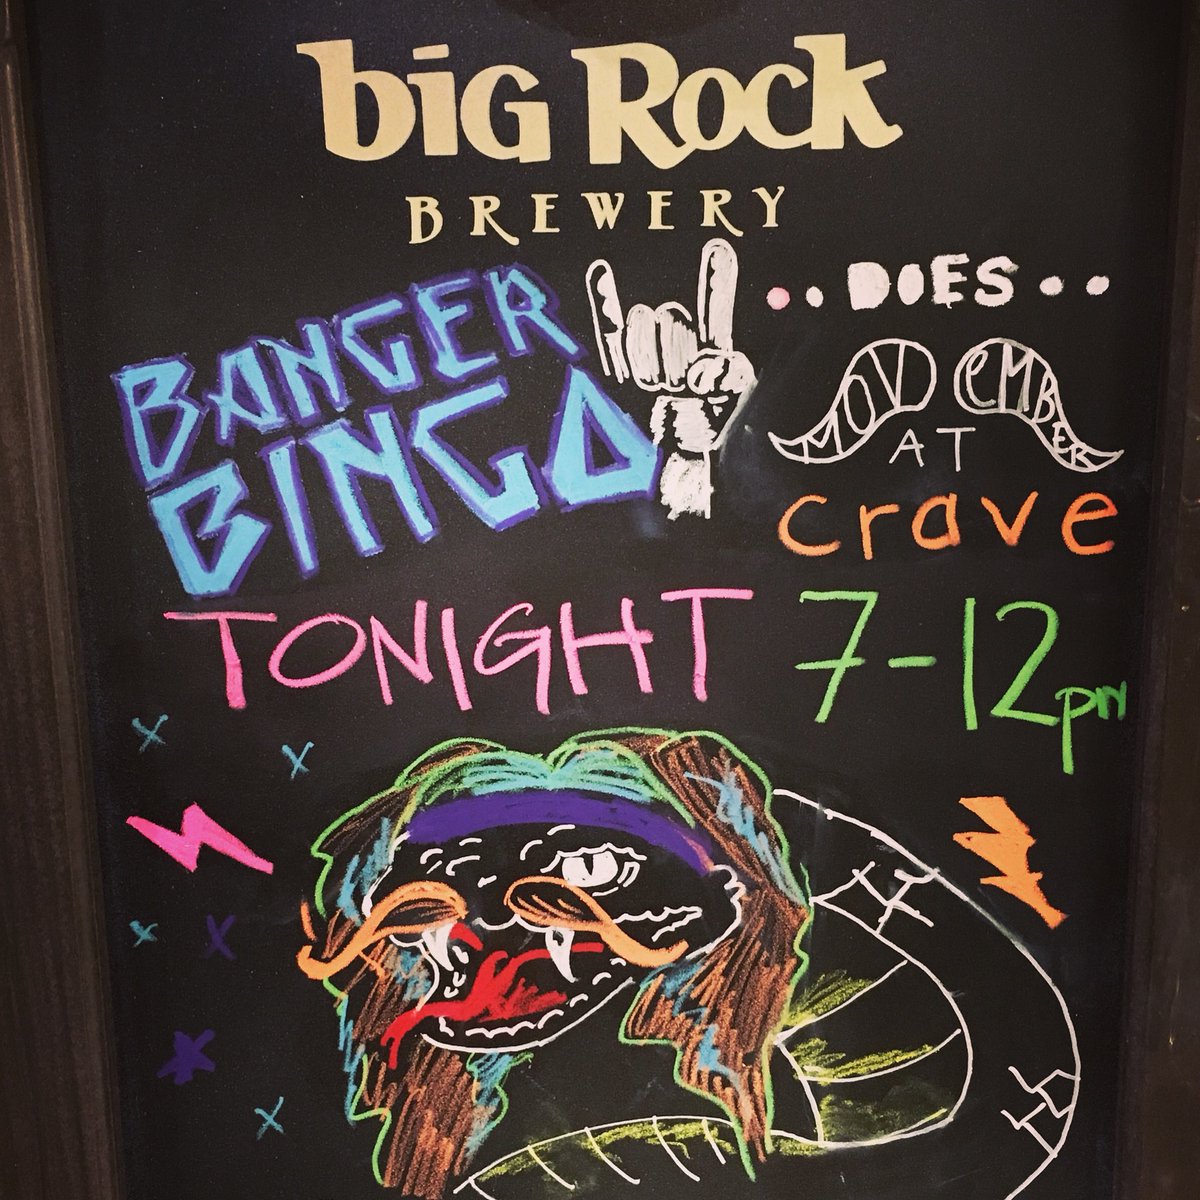 big Rock
BREWERY
BANGER
BINGO
..DOES..
MOVEMBER
AT
crave
TONIGHT 7-12pm